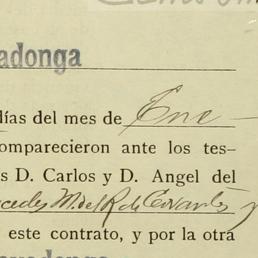 adonga
días del mes de Ene
omparecieron ante los tes-
s D. Carlos y D. Angel del
cedes M. del R. de Cervantes y
este contrato, y por la otra